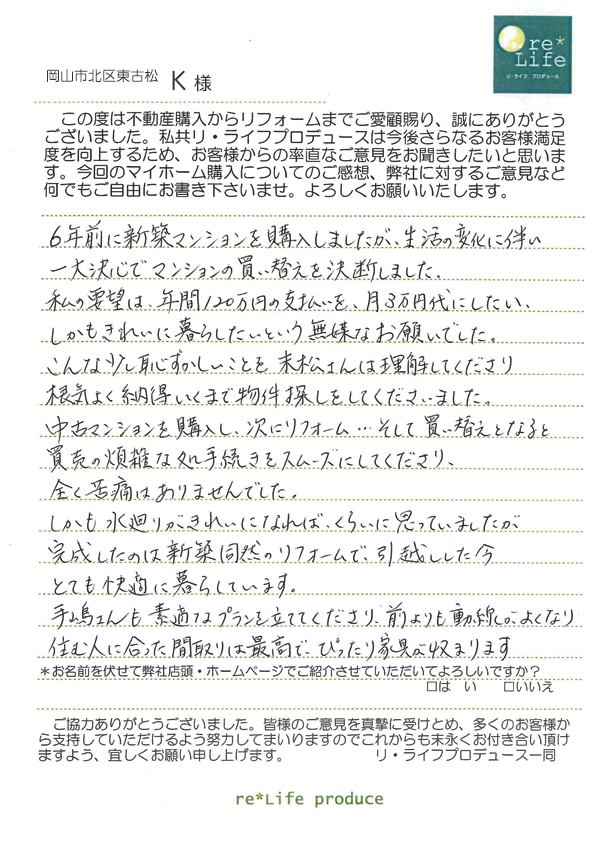 re*
Life
リ・ライフ プロデュース
岡山市北区東古松 K 様
この度は不動産購入からリフォームまでご愛顧賜り、誠にありがとう
ございました。私共リ・ライフプロデュースは今後さらなるお客様満足
度を向上するため、お客様からの率直なご意見をお聞きしたいと思いま
す。今回のマイホーム購入についてのご感想、弊社に対するご意見など
何でもご自由にお書き下さいませ。よろしくお願いいたします。
6年前に新築マンションを購入しましたが、生活の変化に伴い
一大決心でマンションの買い替えを決断しました。
私の要望は、年間120万円の支払いを、月3万円代にしたい、
しかもきれいに暮らしたいという無謀なお願いでした。
こんな少し恥ずかしいことを 末松さんは理解してくださり
根気よく納得いくまで物件探しをしてくださいました。
中古マンションを購入し、次にリフォーム…そして買い替えとなると
買売の煩雑な処手続きをスムーズにしてくださり、
全く苦痛はありませんでした。
しかも水廻りがきれいになれば、くらいに思っていましたが
完成したのは新築同然のリフォームで、引越しした今
とても快適に暮らしています。
手嶋さんも素適なプランを立ててくださり、前よりも動線がよくなり
住む人に合った間取りは最高で、ぴったり家具が収まります
＊お名前を伏せて弊社店頭・ホームページでご紹介させていただいてよろしいですか？
□は い □いいえ
ご協力ありがとうございました。皆様のご意見を真摯に受けとめ、多くのお客様か
ら支持していただけるよう努力してまいりますのでこれからも末永くお付き合い頂け
ますよう、宜しくお願い申し上げます。 リ・ライフプロデュース一同
re*Life produce